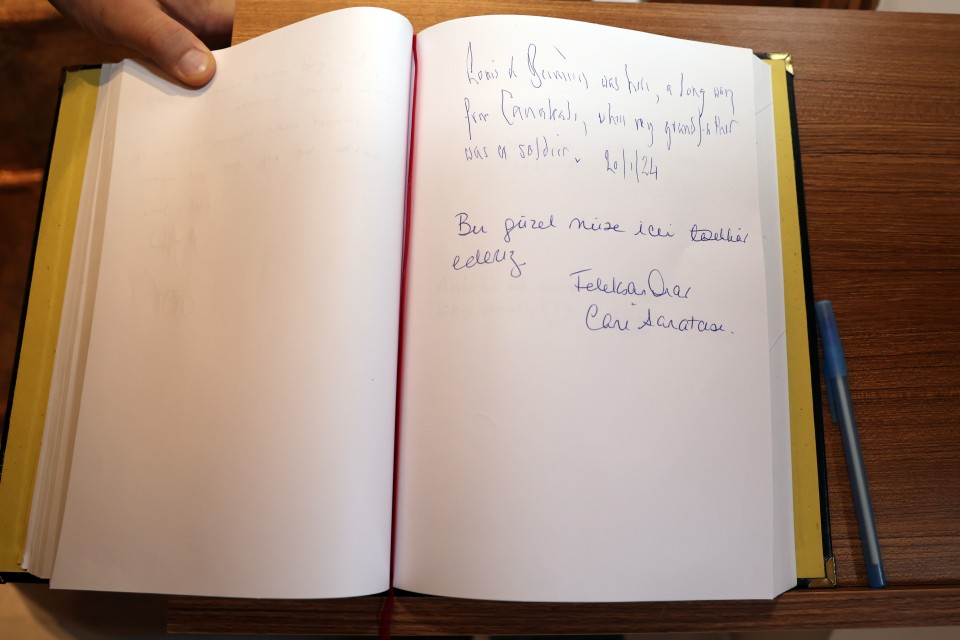 Louis de Bernières was here, a long way
from Canakkale, where my grandfather
was a soldier. 20/1/24
Bu güzel müze için teşekkür
ederiz
Feleksan Onar
Can Sarıtaş